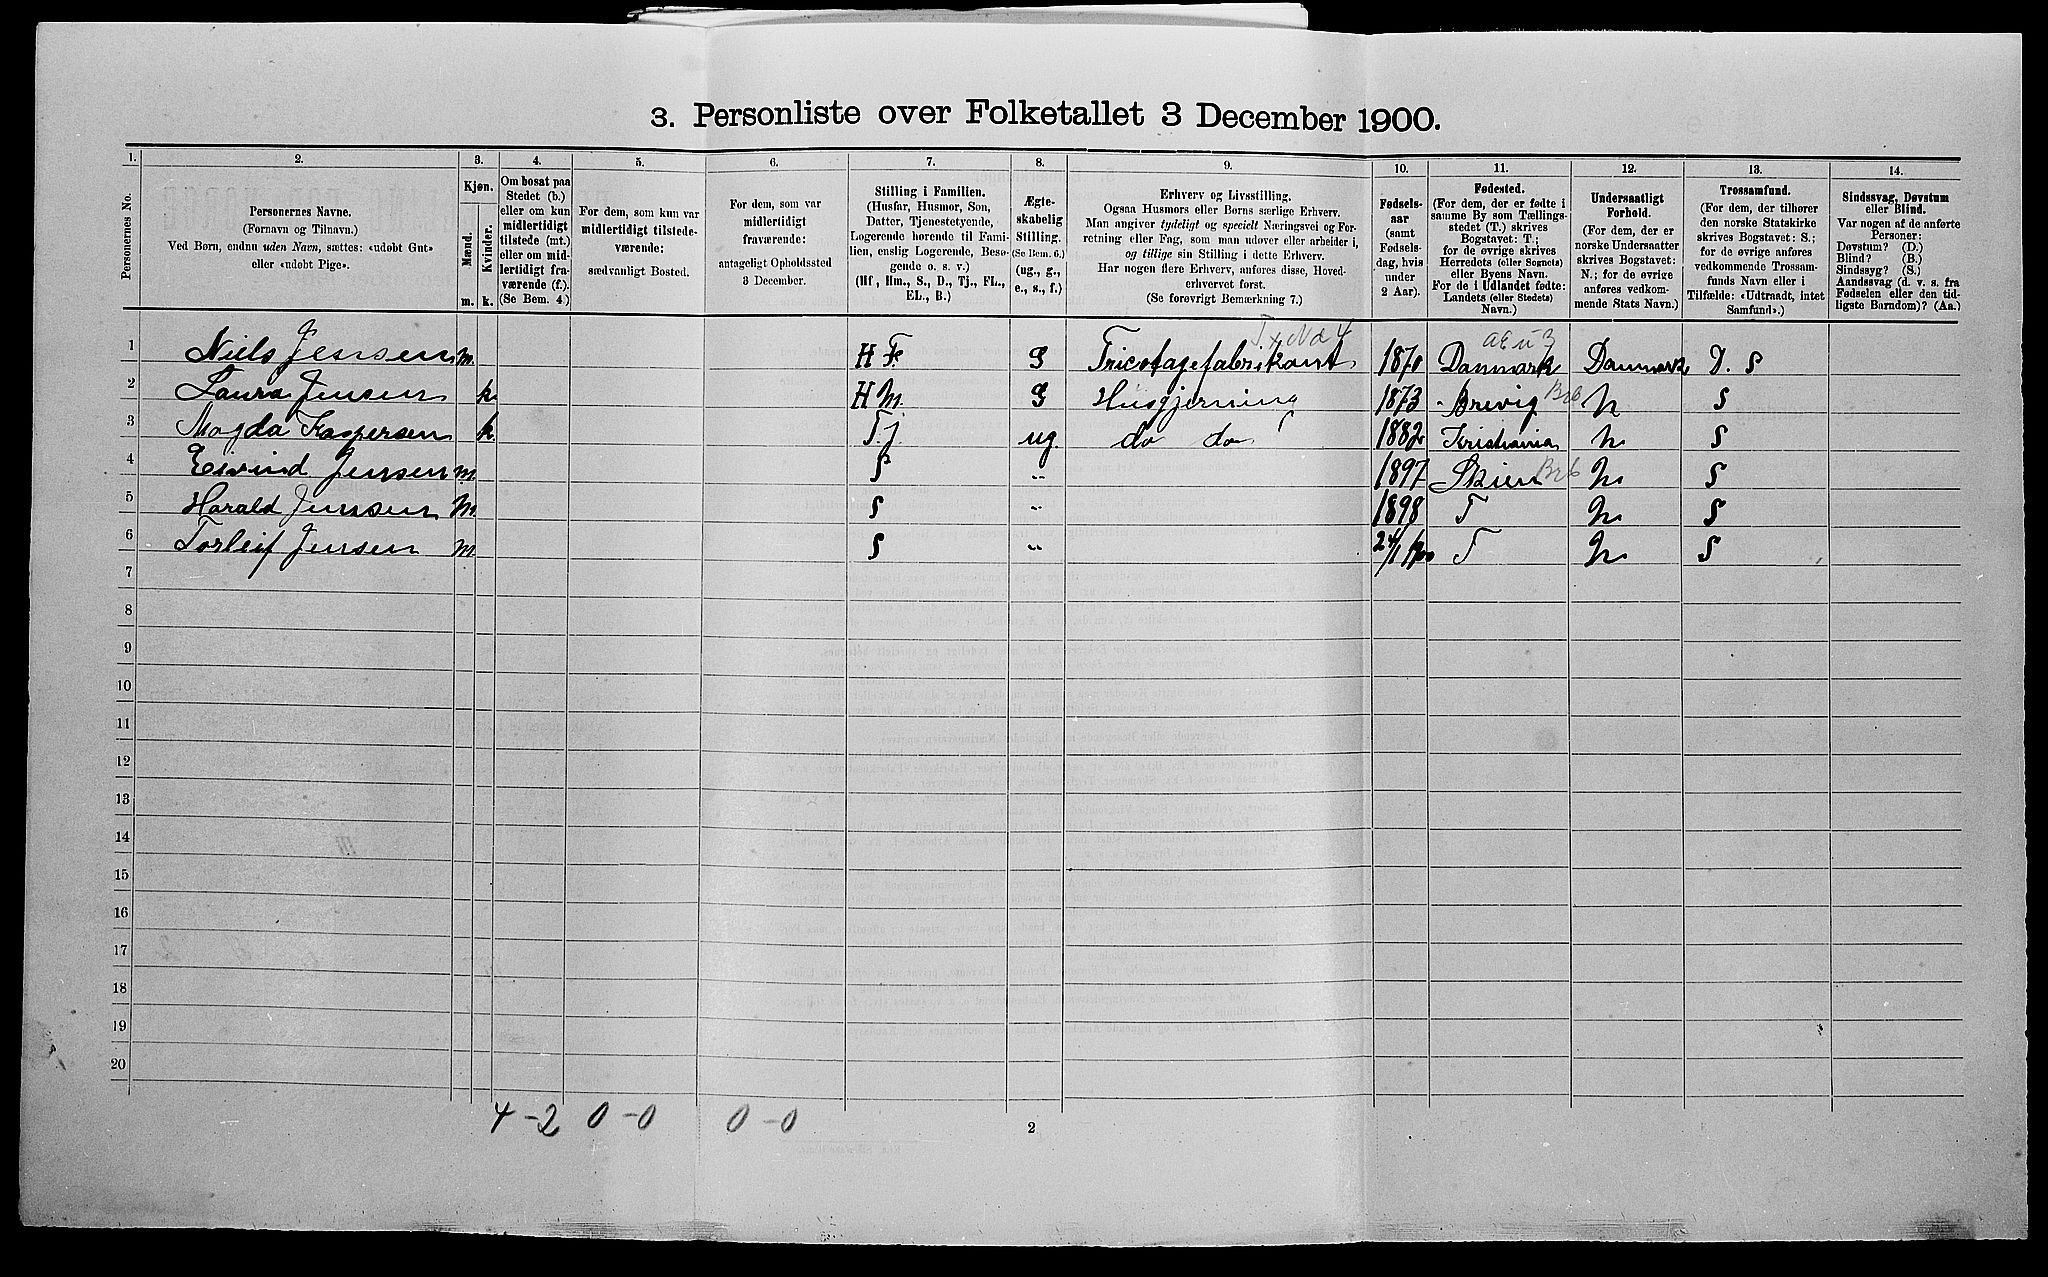 3. Personliste over Folketallet 3 December 1900.
1. 2. 3. 4. 5. 6. 7. 8. 9. 10. 11. 12. 13. 14.
Personernes No.
Personernes Navne.
(Fornavn og Tilnavn.)
Ved Børn, endnu uden Navn, sættes: «udøbt Gut»
eller «udøbt Pige».
Kjøn.
Mænd.
Kvinder.
m. k.
Om bosat paa
Stedet (b.)
eller om kun
midlertidigt
tilstede (mt.)
eller om mid-
lertidigt fra-
værende (f.).
(Se Bem. 4.)
For dem, som kun var
midlertidigt tilstede-
værende:
sædvanligt Bosted.
For dem, som var
midlertidigt
fraværende:
antageligt Opholdssted
3 December.
Stilling i Familien.
(Husfar, Husmor, Søn,
Datter, Tjenestetyende,
Logerende hørende til Fami-
lien, enslig Logerende, Besø-
gende o. s. v.)
(Hf, Hm., S., D., Tj., FL.,
EL., B.)
Ægte-
skabelig
Stilling.
(Se Bem. 6.)
(ug., g.,
e., s., f.)
Erhverv og Livsstilling.
Ogsaa Husmors eller Børns særlige Erhverv.
Man angiver tydeligt og specielt Næringsvei og For-
retning eller Fag, som man udøver eller arbeider i,
og tillige sin Stilling i dette Erhverv.
Har nogen flere Erhverv, anføres disse, Hoved-
erhvervet først.
(Se forøvrigt Bemærkning 7.)
Fødsels-
aar
(samt
Fødsels-
dag, hvis
under
2 Aar).
Fødested.
(For dem, der er fødte i
samme By som Tællings-
stedet (T.) skrives
Bogstavet: T.;
for de øvrige skrives
Herredets (eller Sognets)
eller Byens Navn.
For de i Udlandet fødte:
Landets (eller Stedets)
Navn.)
Undersaatligt
Forhold.
(For dem, der er
norske Undersaatter
skrives Bogstavet:
N.; for de øvrige
anføres vedkom-
mende Stats Navn.)
Trossamfund.
(For dem, der tilhører
den norske Statskirke
skrives Bogstavet: S.;
for de øvrige anføres
vedkommende Trossam-
funds Navn eller i
Tilfælde: «Udtraadt, intet
Samfund».)
Sindssvag, Døvstum
eller Blind.
Var nogen af de anførte
Personer:
Døvstum? (D.)
Blind? (B.)
Sindssyg? (S.)
Aandssvag (d. v. s. fra
Fødselen eller den tid-
ligste Barndom)? (Aa.)
1 Niels Jensen m. H F. G Tricotagefabrikant 1870 Danmark Danmark D. S
2 Laura Jensen k. H M. G Husgjerning 1873 Brevig N S
3 Magda Kaspersen k. T.j. ug. do do 1882 Kristiania N S
4 Eivind Jensen m. S " 1897 Skien N. S
5 Harald Jensen m. S " 1898 T N. S
6 Torleif Jensen m. S " 24/1 1900 T N S
7
8
9
10
11
12
13
14
15
16
17
18
19
20
4 - 2 0 - 0 0 - 0
2